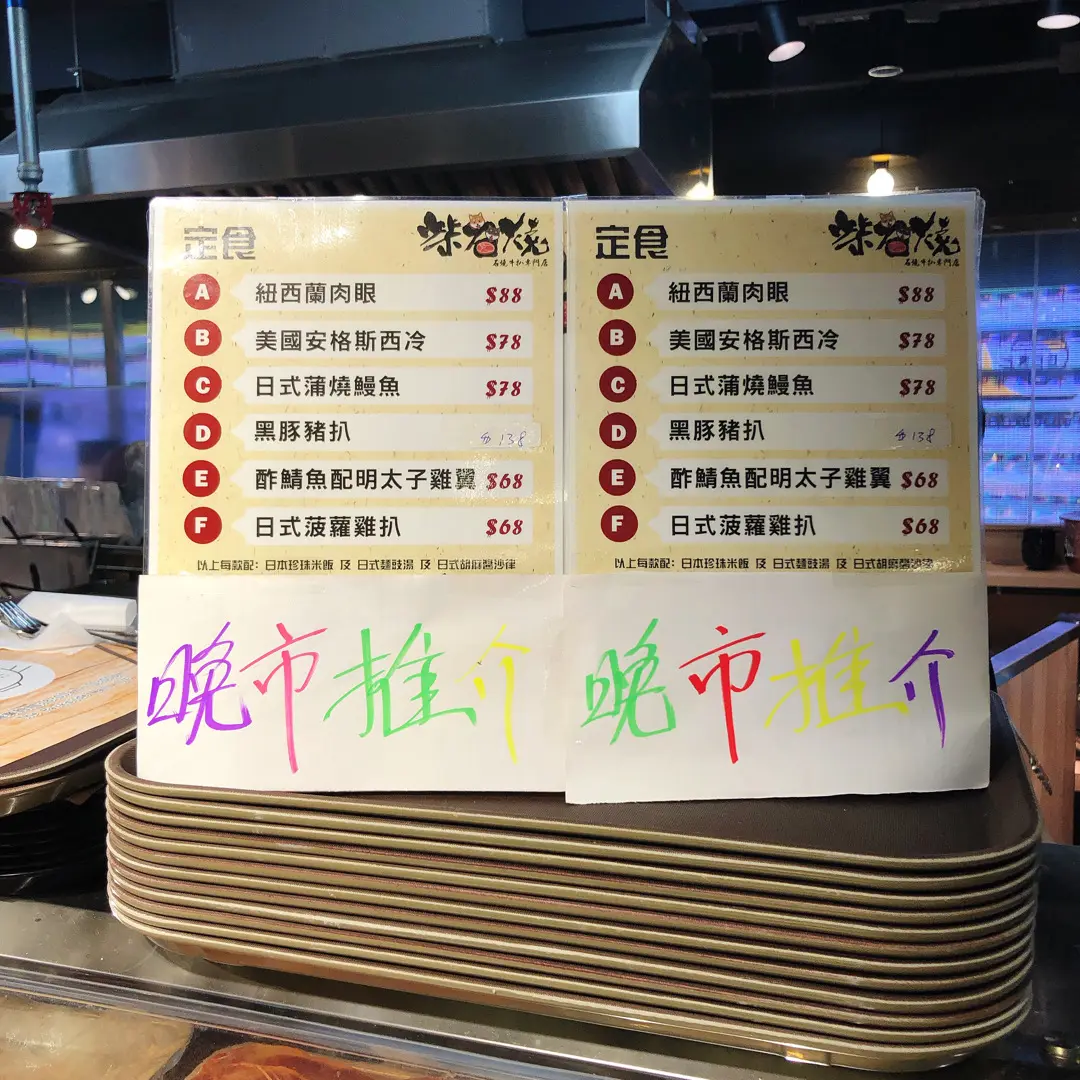 定食
柴谷燒
石燒牛扒專門店
A 紐西蘭肉眼 $88
B 美國安格斯西冷 $78
C 日式蒲燒鰻魚 $78
D 黑豚豬扒 $138
E 酢鯖魚配明太子雞翼 $68
F 日式菠蘿雞扒 $68
以上每款配：日本珍珠米飯 及 日式麵豉湯 及 日式胡麻醬沙律
晚市推介
定食
柴谷燒
石燒牛扒專門店
A 紐西蘭肉眼 $88
B 美國安格斯西冷 $78
C 日式蒲燒鰻魚 $78
D 黑豚豬扒 $138
E 酢鯖魚配明太子雞翼 $68
F 日式菠蘿雞扒 $68
以上每款配：日本珍珠米飯 及 日式麵豉湯 及 日式胡麻醬沙律
晚市推介